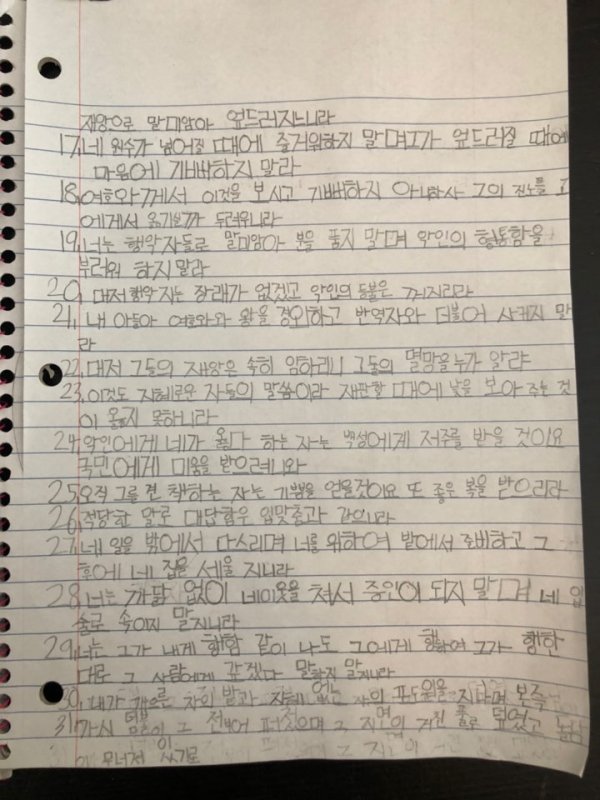 재앙으로 말미암아 엎드러지느니라
17. 네 원수가 넘어질 때에 즐거워하지 말며 그가 엎드러질 때에
마음에 기뻐하지 말라
18. 여호와께서 이것을 보시고 기뻐하지 아니하사 그의 진노를 그
에게서 옮기실까 두려워니라
19. 너는 행악자들로 말미암아 분을 품지 말며 악인의 형통함을
부러워 하지말라
20. 대저 행악자는 장래가 없겠고 악인의 등불은 꺼지리라
21. 내 아들아 여호와와 왕을 경외하고 반역자와 더불어 사귀지 말
라
22. 대저 그들의 재앙은 속히 임하리니 그둘의 멸망을 누가 알랴
23. 이것도 지혜로운 자들의 말씀이라 재판할 때에 낯을 보아 주는 것
이 옳지 못하니라
24. 악인에게 네가 옳다 하는 자는 백성에게 저주를 받을 것이요
국민에게 미움을 받으려니와
25. 오직 그를 견책하는 자는 기쁨을 얻을것이요 또 좋은 복을 받으리라
26. 적당한 말로 대답함은 입맞춤과 같으니라
27. 네 일을 밖에서 다스리며 너를 위하여 밭에서 준비하고 그
후에 네 집을 세울 지니라
28. 너는 까닭 없이 네이웃을 쳐서 증인이 되지 말며 네 입
술로 속이지 말지니라
29. 너는 그가 내게 행함 같이 나도 그에게 행하여 그가 행한
대로 그 사람에게 갚겠다 말하지 말지니라
30. 내가 게으른 자의 밭과 지혜 없는 자의 포도원을 지나며 본즉
31. 가시 덤불이 그 전부에 퍼졌으며 그 지면이 거친 풀로 덮였고 돌담
이 무너져 있기로